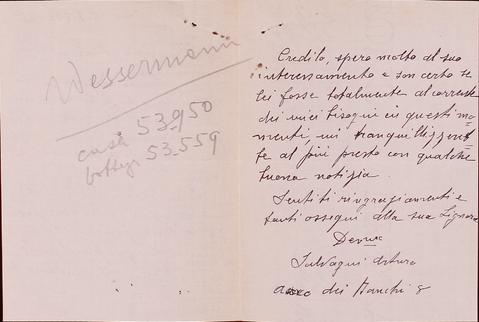 Wessermann
casa 53950
bottega 53.559
Credilo, spero molto del suo
interessamento e son certo se
lei fosse totalmente al corrente
dei miei bisogni in questi mo=
menti, mi tranquillizzereb=
be al più presto con qualche
buona notizia.
Sentiti ringraziamenti e
tanti ossequi alla sua Signora
Devmo
Salvagni Arturo
dei Bianchi 8